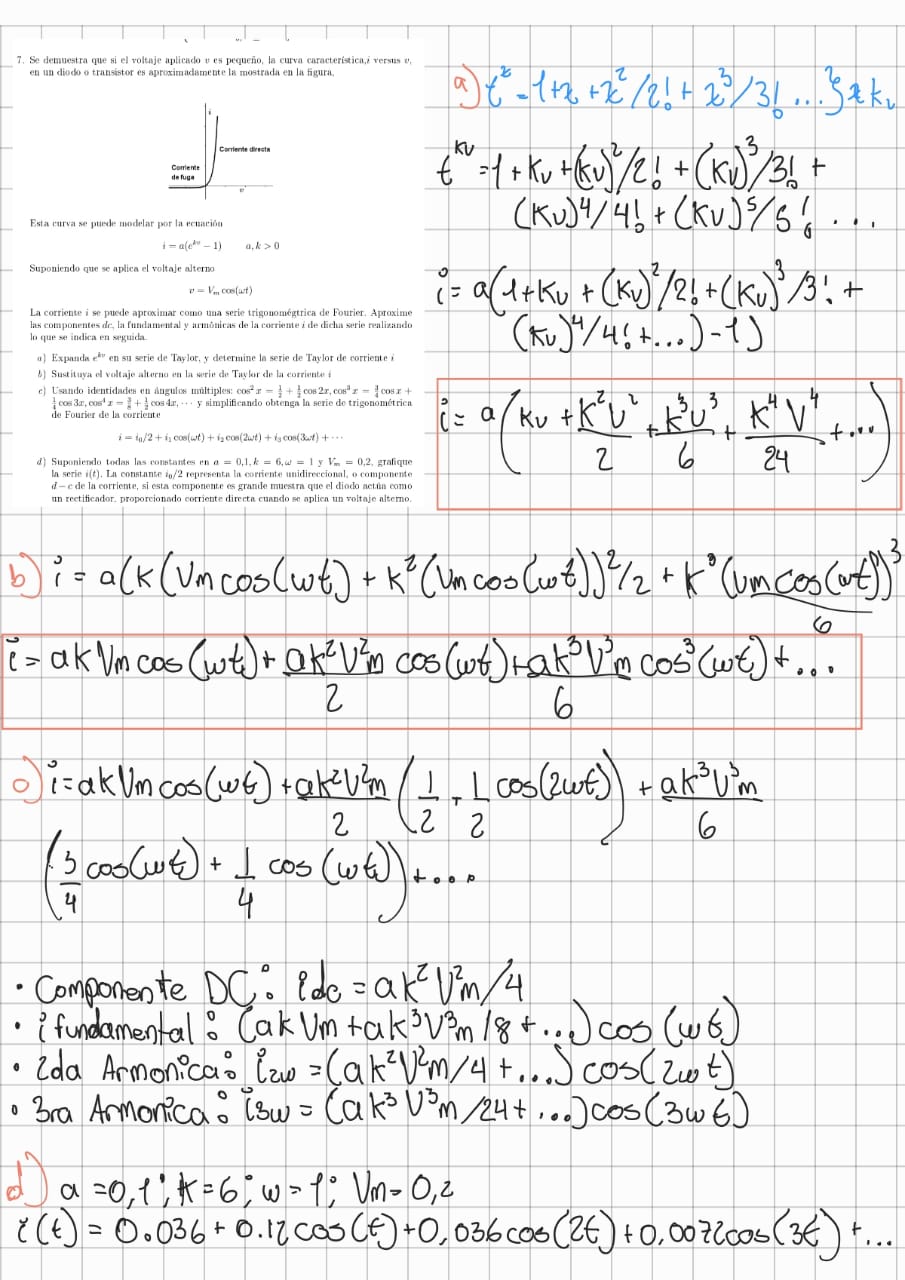 7. Se demuestra que si el voltaje aplicado v es pequeño, la curva característica,i versus v,
en un diodo o transistor es aproximadamente la mostrada en la figura,
i
Corriente directa
Corriente
de fuga
v
Esta curva se puede modelar por la ecuación
i = a(e^{kv} − 1)    a, k > 0
Suponiendo que se aplica el voltaje alterno
v = V_m cos(ωt)
La corriente i se puede aproximar como una serie trigonomégtrica de Fourier. Aproxime
las componentes dc, la fundamental y armónicas de la corriente i de dicha serie realizando
lo que se indica en seguida.
a) Expanda e^{kv} en su serie de Taylor, y determine la serie de Taylor de corriente i
b) Sustituya el voltaje alterno en la serie de Taylor de la corriente
c) Usando identidades en ángulos múltiples: cos² x = 1/2 + 1/2 cos 2x, cos³ x = 3/4 cos x +
1/4 cos 3x, cos⁴ x = 3/8 + 1/2 cos 4x, ··· y simplificando obtenga la serie de trigonométrica
de Fourier de la corriente
i = i₀/2 + i₁ cos(ωt) + i₂ cos(2ωt) + i₃ cos(3ωt) + ···
d) Suponiendo todas las constantes en a = 0,1, k = 6, ω = 1 y V_m = 0,2, grafique
la serie i(t). La constante i₀/2 representa la corriente unidireccional, o componente
d − c de la corriente, si esta componente es grande muestra que el diodo actúa como
un rectificador, proporcionado corriente directa cuando se aplica un voltaje alterno.
a) t^x = 1+x+x²/2!+x³/3!...} x kv
t^{kv} = 1+kv+(kv)²/2!+(kv)³/3!+
(kv)⁴/4!+(kv)⁵/5!...
i = a(1+kv+(kv)²/2!+(kv)³/3!+
(kv)⁴/4!+...)-1)
i = a(kv + k²v²/2 + k³v³/6 + k⁴v⁴/24 +...)
b) i = a(k(Vm cos(wt)+k²(Vm cos(wt))²/2 + k³(Vm cos(wt))³/6
i = akVm cos(wt)+ak²V²m/2 cos(wt)+ak³V³m/6 cos³(wt)+...
c) i=akVm cos(wt)+ak²V²m/2 (1/2 + 1/2 cos(2wt)) + ak³V³m/6
(3/4 cos(wt) + 1/4 cos(wt))+...
• Componente DC: idc = ak²V²m/4
• i fundamental: (akVm+ak³V³m/8+...)cos(wt)
• 2da Armonica: i2w =(ak²V²m/4+...)cos(2wt)
• 3ra Armonica: i3w = (ak³V³m/24+...)cos(3wt)
d) a =0,1; k=6; w=1; Vm=0,2
i(t) = 0.036+0.12cos(t)+0,036cos(2t)+0,0072cos(3t)+...